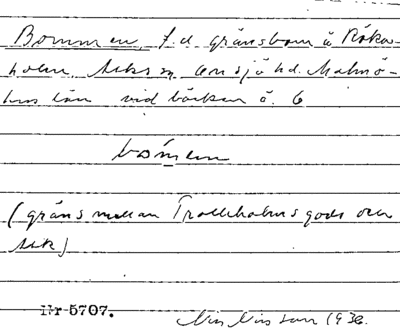 Bommen f.d. gränsbom å Röka-
holm Asks sn Onsjö hd. Malmö-
hus län vid bäcken ö. 6
bómen
(gräns mellan Trolleholms gods och
Ask)
Nr 5707.
Nils Nilsson 1936.